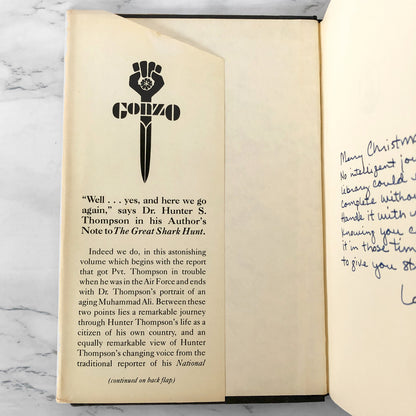 GONZO
"Well . . . yes, and here we go
again," says Dr. Hunter S.
Thompson in his Author's
Note to The Great Shark Hunt.
Indeed we do, in this astonishing
volume which begins with the report
that got Pvt. Thompson in trouble
when he was in the Air Force and ends
with Dr. Thompson's portrait of an
aging Muhammad Ali. Between these
two points lies a remarkable journey
through Hunter Thompson's life as a
citizen of his own country, and an
equally remarkable view of Hunter
Thompson's changing voice from the
traditional reporter of his National
(continued on back flap)
Merry Christmas
No intelligent
library could
complete
Handle it with
Knowing you
it in those
to give you